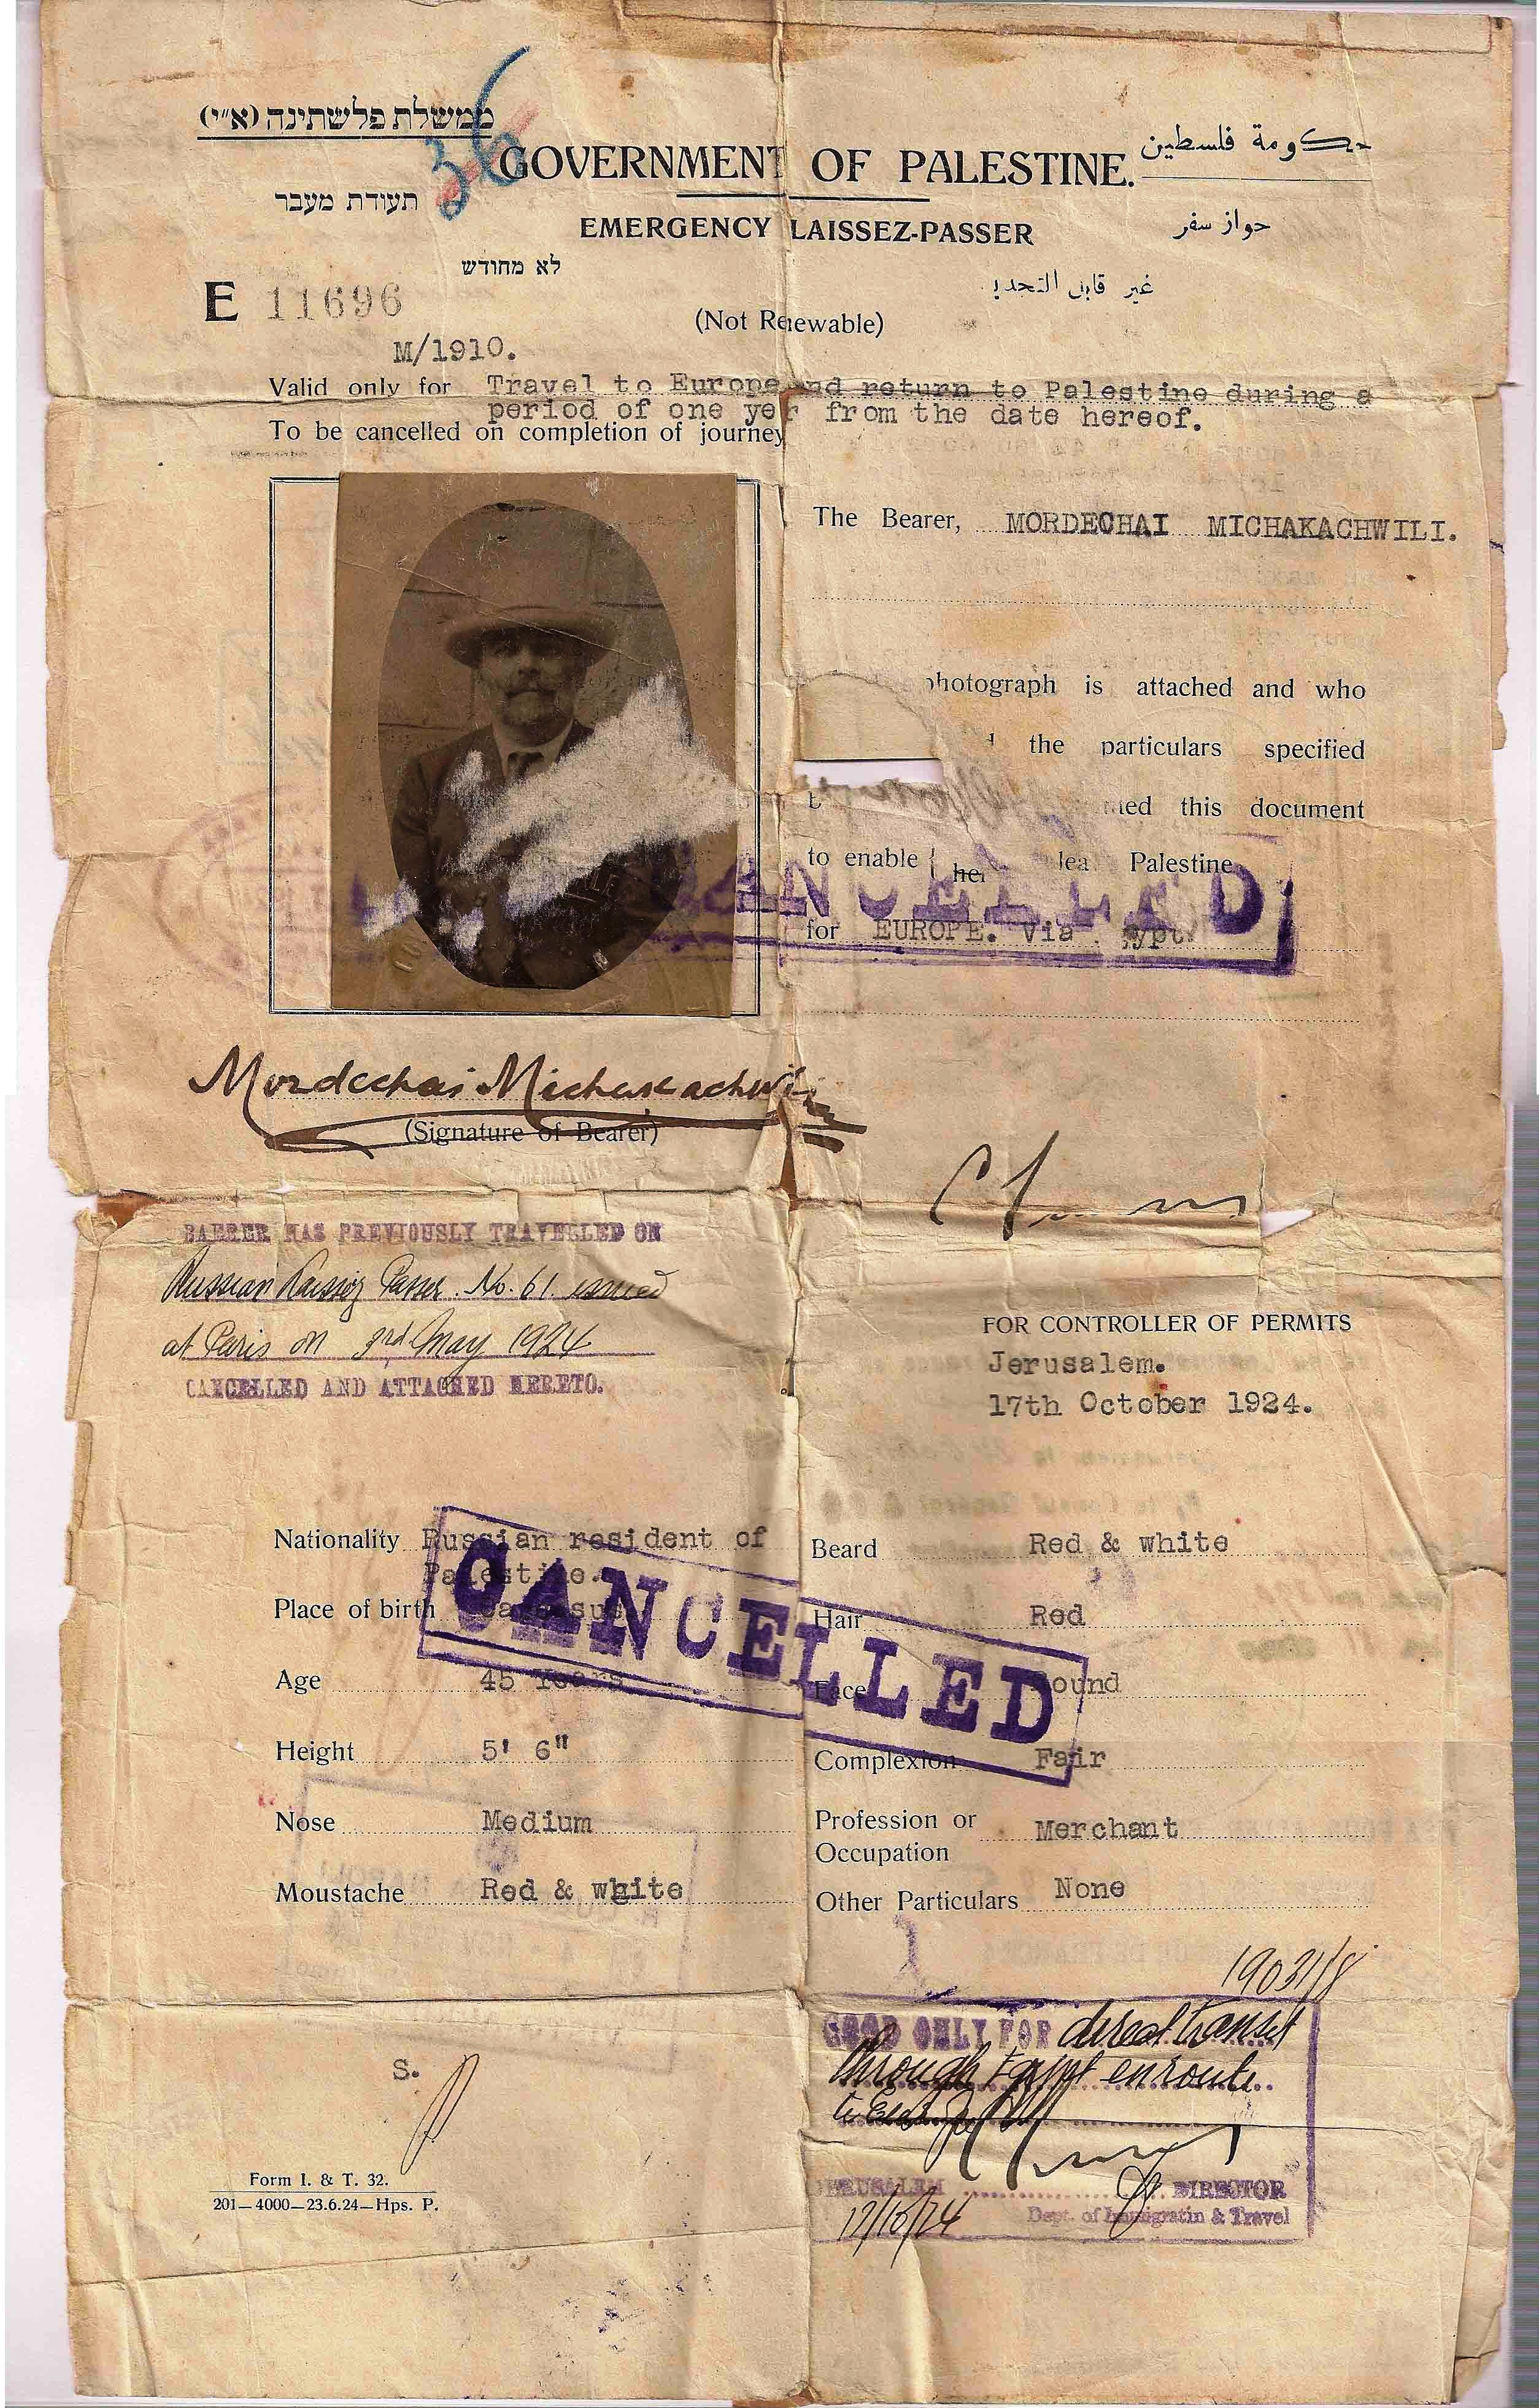 ממשלת פלשתינה (א״י)
36
GOVERNMENT OF PALESTINE.
حكومة فلسطين
תעודת מעבר
EMERGENCY LAISSEZ-PASSER
جواز سفر
לא מחודש
غير قابل التجديد
E 11696
(Not Renewable)
M/1910.
Valid only for Travel to Europe and return to Palestine during a
period of one year from the date hereof.
To be cancelled on completion of journey
The Bearer, MORDECHAI MICHAKACHWILI.
photograph is attached and who
the particulars specified
this document
to enable her Palestine
CANCELLED
for EUROPE. Via
Mordechai Michakachwili
(Signature of Bearer)
BAERER HAS PREVIOUSLY TRAVELLED ON
Russian Laissez Passer. No. 61 issued
at Paris on 3rd May 1924
CANCELLED AND ATTACHED HERETO.
FOR CONTROLLER OF PERMITS
Jerusalem.
17th October 1924.
Nationality Russian resident of
Palestine.
Place of birth Caucasus
Age 45 Years
Height 5' 6"
Nose Medium
Moustache Red & white
Beard Red & white
Hair Red
Face Round
Complexion Fair
Profession or
Occupation Merchant
Other Particulars None
CANCELLED
19031/8
GOOD ONLY FOR direct transit
through Egypt en route
JERUSALEM DIRECTOR
17/10/24 Dept. of Immigratin & Travel
S.
Form I. & T. 32.
201—4000—23.6.24—Hps. P.